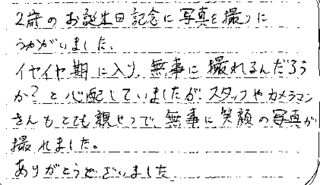 2歳のお誕生日記念に写真を撮りに
うかがいました。
イヤイヤ期に入り、無事に撮れるんだろう
か?と心配していましたが、スタッフやカメラマン
さんもとても親せつで、無事に笑顔の写真が
撮れました。
ありがとうございました